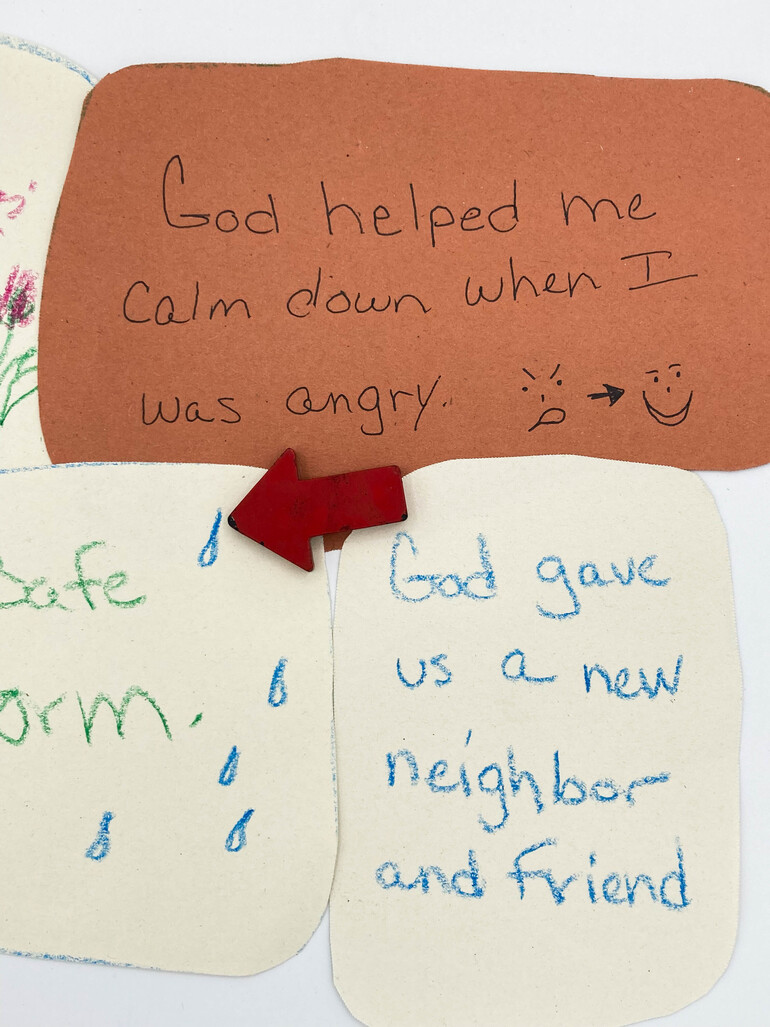 God helped me
calm down when I
was angry.
Safe
orm.
God gave
us a new
neighbor
and friend